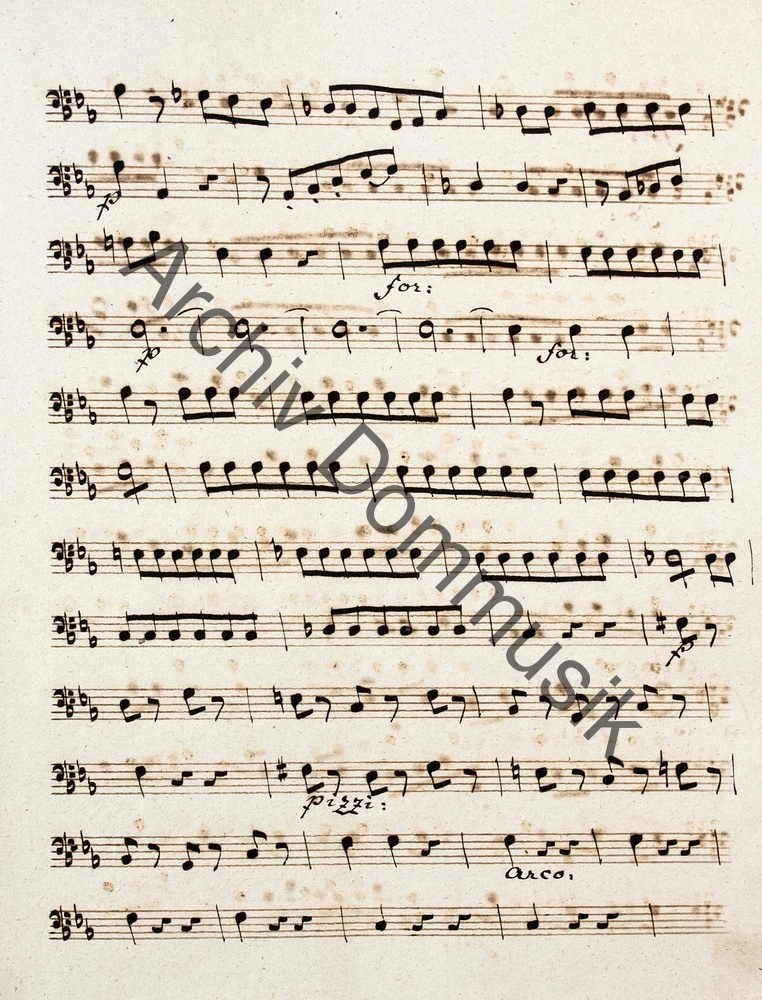 p
for:
p
for:
p
pizzi:
arco:
Archiv Dommusik